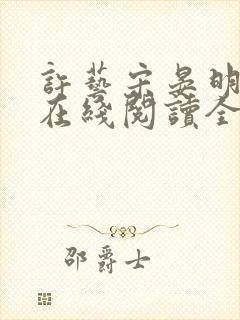 許藝宋晏明
在綫閱讀全
邵爵士